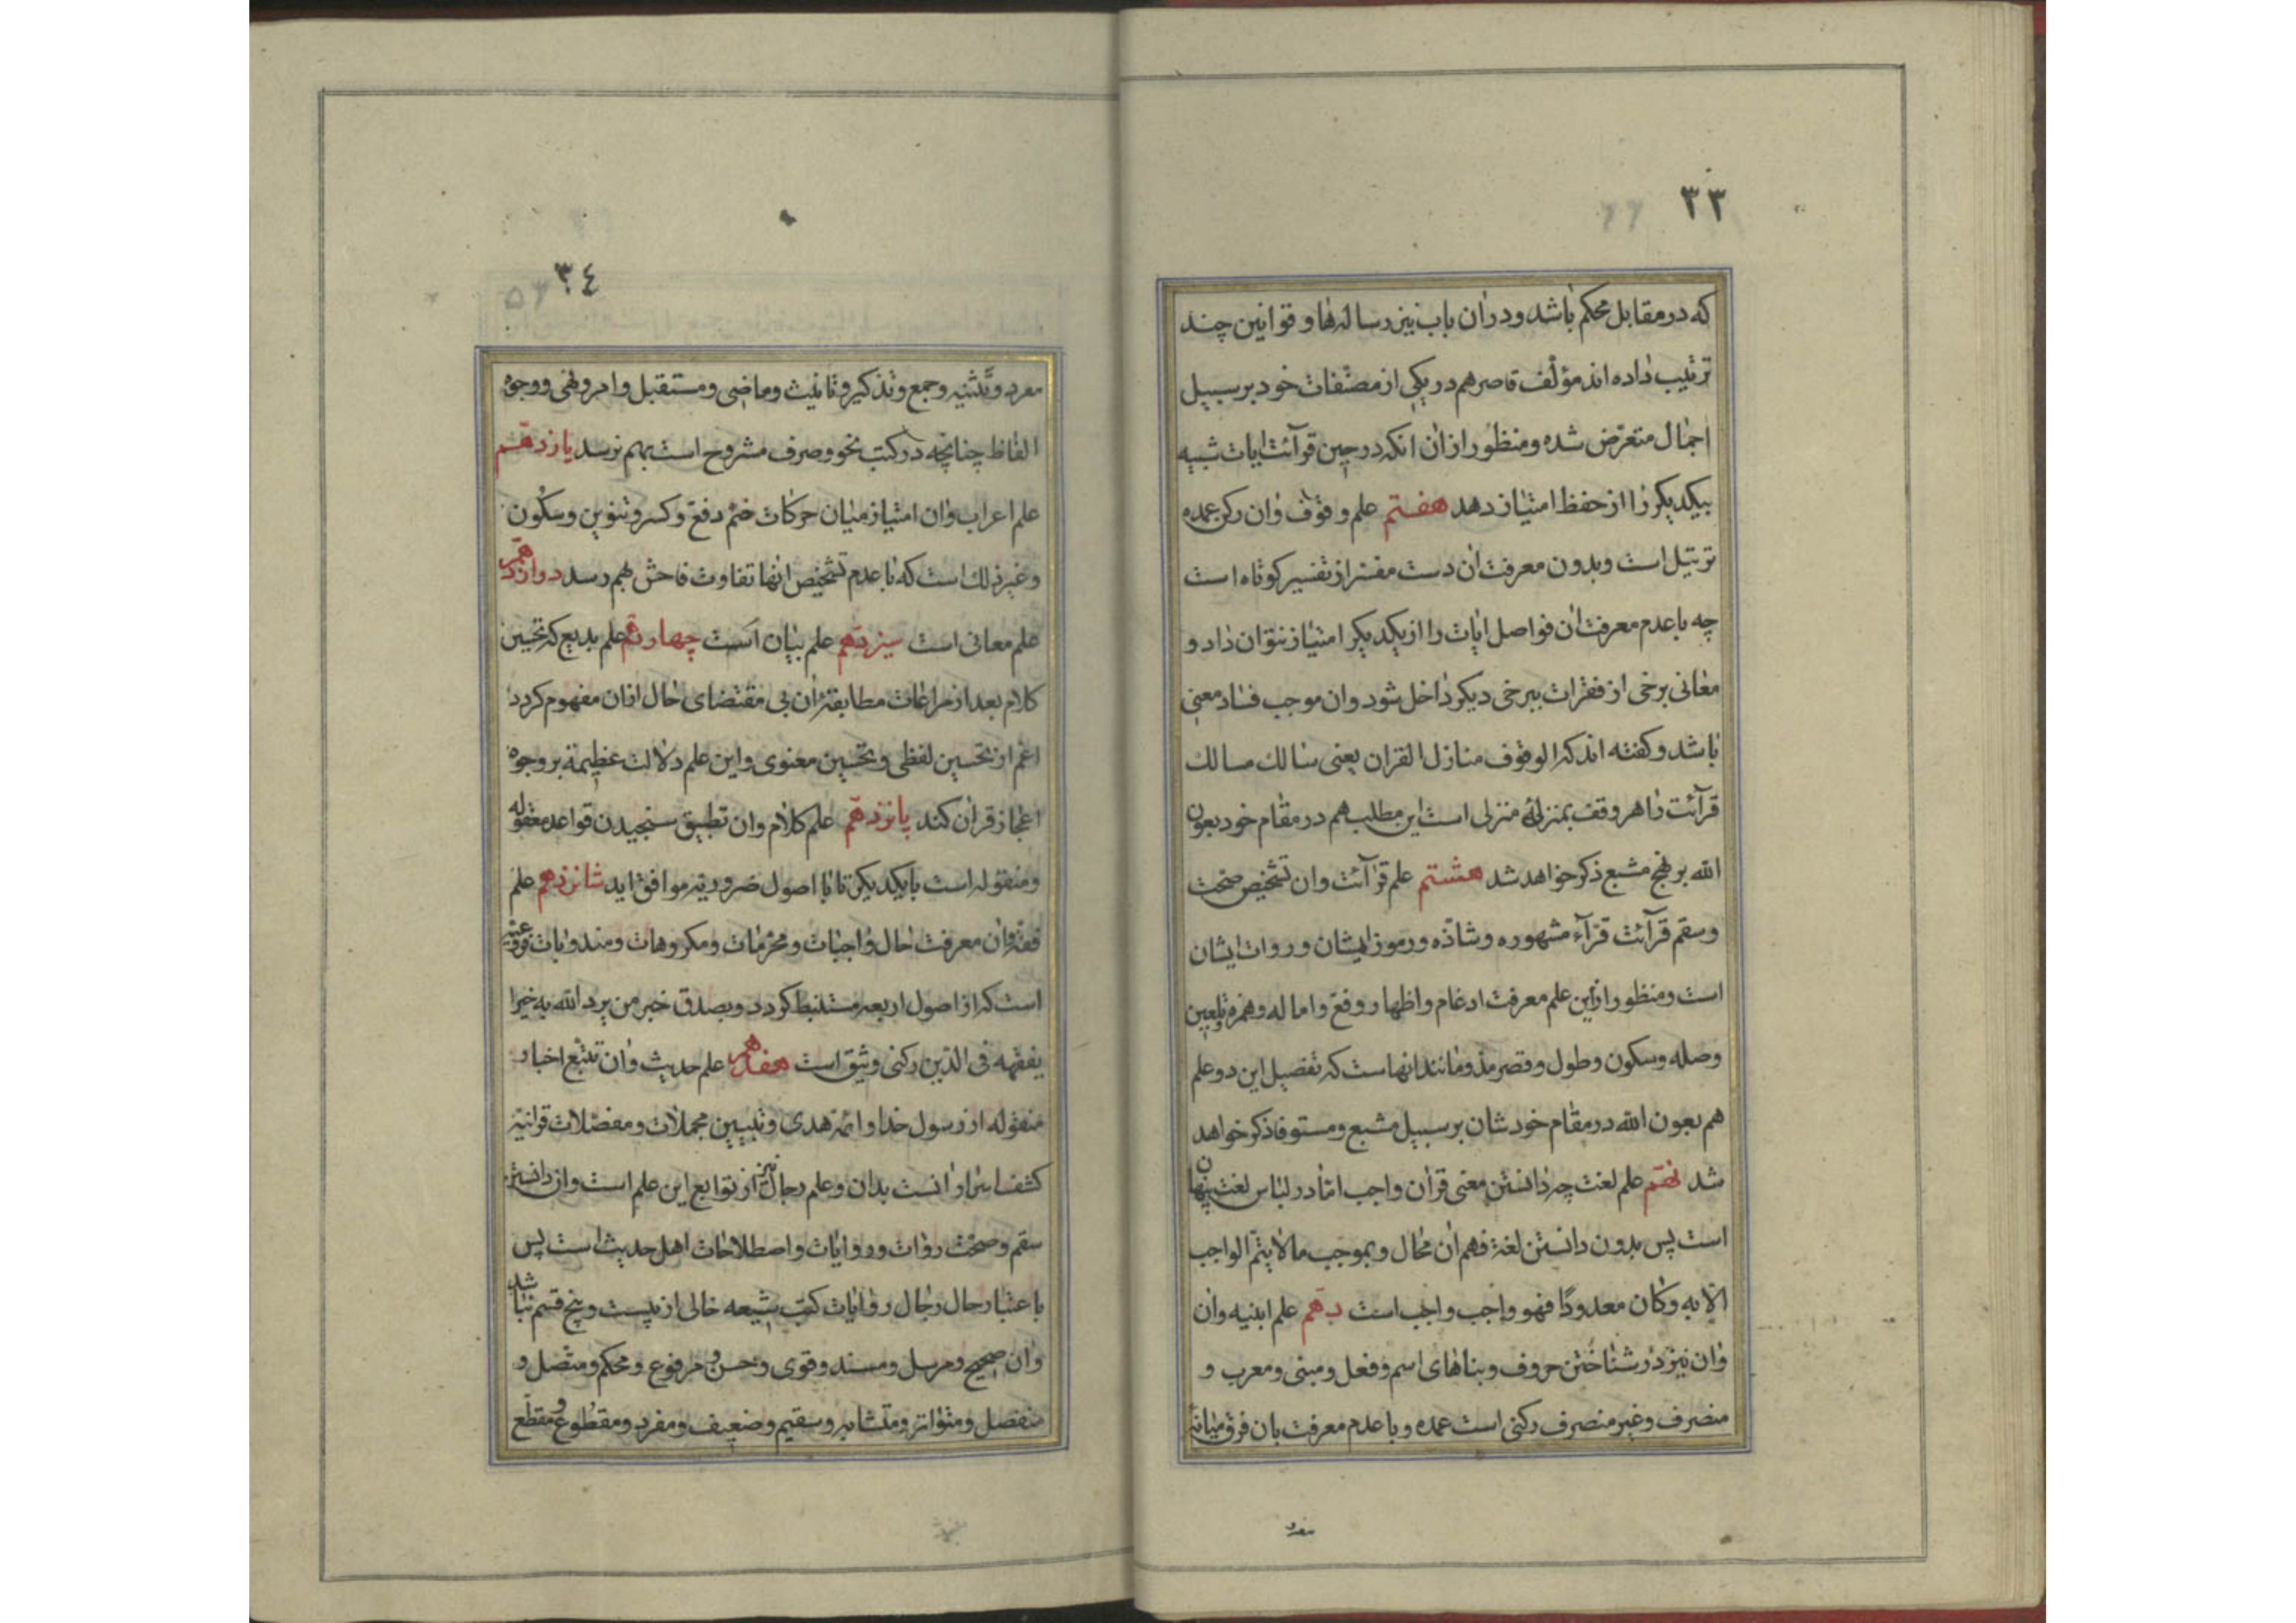 ۳۳
که در مقابل محکم باشد و در ان باب نیز رساله ها و قوانین چند
ترتیب داده اند مؤلف قاصر هم در یکی از مصنفات خود بر سبیل
اجمال متعرض شده و منظور از ان انکه در حین قرآئت ایات شبیه
بیکدیکر را از حفظ امتیاز دهد هفتم علم وقوف وان رکن عمده
ترتیل است و بدون معرفت ان دست مفسر از تفسیر کوتاه است
چه با عدم معرفت ان فواصل ایات را از یکدیکر امتیاز نتوان داد و
معانی برخی از فقرات ببرخی دیکر داخل شود وان موجب فساد معنی
باشد و کفته اند که الوقوف منازل القران یعنی سالك مسالك
قرآئت را هر وقف بمنزلهٔ منزلی است این مطلب هم در مقام خود بعون
الله بر نهج مشبع ذکر خواهد شد هشتم علم قرآئت وان تشخیص صحت
وسقم قرآئت قرآء مشهوره و شاذّه ورموز ایشان و روات ایشان
است و منظور از این علم معرفت ادغام واظهار و وقف واماله وهمزه وتلیین
وصله وسکون و طول وقصر مد ومانند انهاست که تفصیل این دو علم
هم بعون الله در مقام خودشان بر سبیل مشبع ومستوفا ذکر خواهد
شد نهم علم لغت چه دانستن معنی قران واجب اما در لباس لغت پنهان
است پس بدون دانستن لغة فهم ان محال و بموجب مالا یتم الواجب
الا به وکان معدودًا فهو واجب واجب است دهم علم ابنیه وان
وان نیز در شناختن حروف و بناهای اسم و فعل و مبنی ومعرب و
منصرف وغیر منصرف رکنی است عمده و با عدم معرفت بان فرق میانه
مفرد
۳٤
مفرد و تثنیه و جمع و تذکیر و تانیث و ماضی و مستقبل و امر و نهی و وجوه
الفاظ چنانچه در کتب نحو وصرف مشروح است بهم نرسد یازدهم
علم اعراب وان امتیاز میان حرکات ضم و فتح و کسر و تنوین و سکون
و غیر ذلك است که با عدم تشخیص انها تفاوت فاحش بهم رسد دوازدهم
علم معانی است سیزدهم علم بیان است چهاردهم علم بدیع که تحسین
کلام بعد از مراعات مطابقة ان بی مقتضای حال از ان مفهوم کردد
اعم از تحسین لفظی و تحسین معنوی واین علم دلالت عظیمة بر وجوه
اعجاز قران کند پانزدهم علم کلام وان تطبیق سنجیدن قواعد معقوله
ومنقوله است با یکدیکر تا با اصول ضروریه موافق اید شانزدهم علم
فقه وان معرفت احال واجبات و محرمات و مکروهات و مندوبات
است که از اصول اربعه مستنبط کردد و بصدق خبر من یرد الله به خیرا
یفقهه فی الدین رکنی وثیق است هفدهم علم حدیث وان تتبع اخبار
منقوله از رسول خدا و ائمه هدی و تبیین مجملات و مفصلات قرانیه
کشف اسرار انست بدان و علم رجال نیز از توابع این علم است وان دانستن
سقم و صحت روات وروایات واصطلاحات اهل حدیث است پس
باعتبار حال رجال روایات کتب شیعه خالی از بیست وپنج قسم نباشد
وان صحیح و مرسل و مسند و قوی و حسن و مرفوع و محکم و متصل و
منفصل و متواتر و متشابه و سقیم و ضعیف و مفرد و مقطوع و مقطع